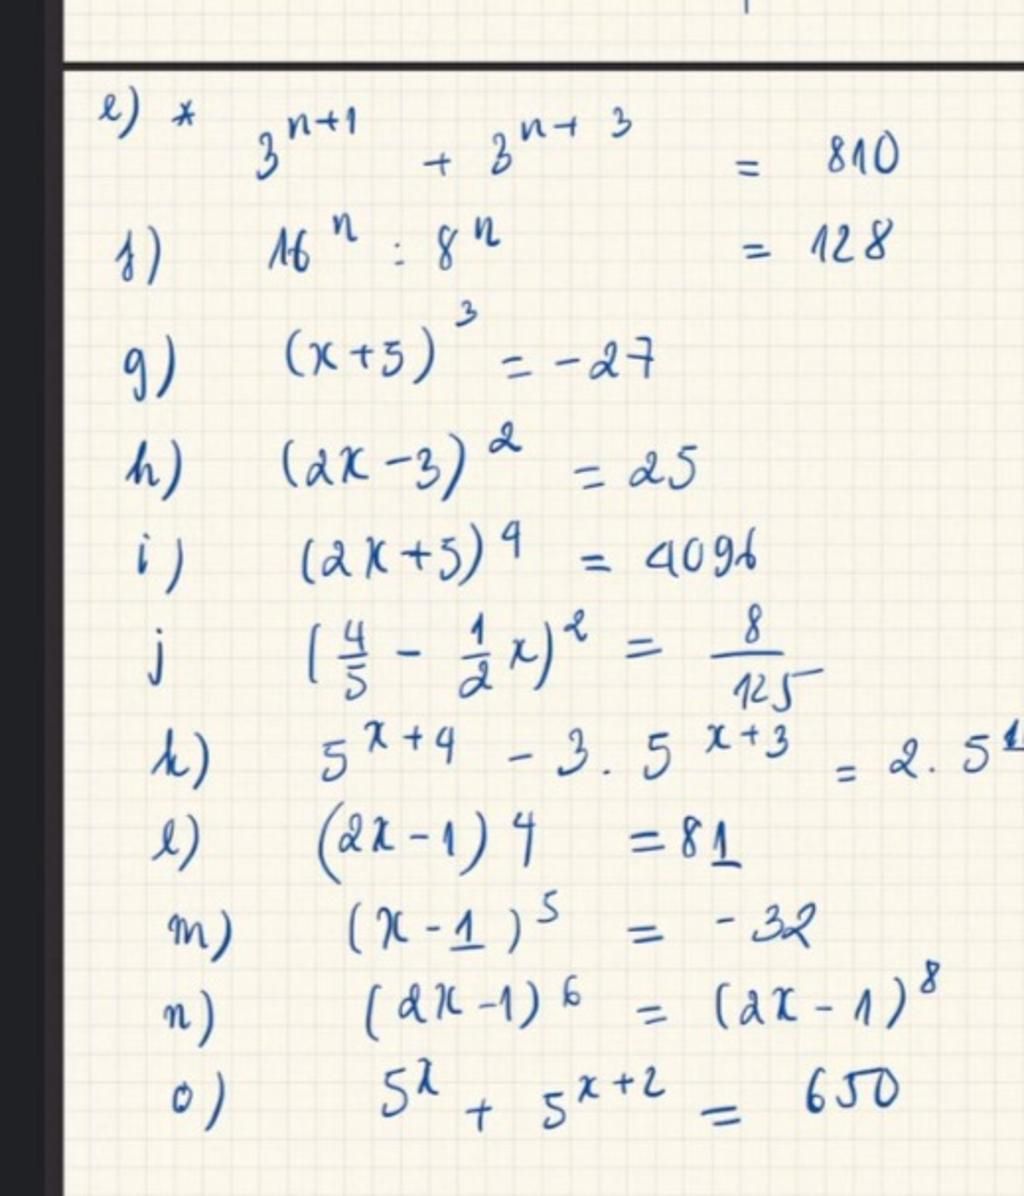 e) * 3^{n+1} + 3^{n+3} = 810
f) 16^n : 8^n = 128
g) (x+5)^3 = -27
h) (2x-3)^2 = 25
i) (2x+5)^4 = 4096
j (4/5 - 1/2 x)^2 = 8/125
k) 5^{x+4} - 3. 5^{x+3} = 2. 5^1
l) (2x-1)4 = 81
m) (x-1)^5 = -32
n) (2x-1)^6 = (2x-1)^8
o) 5^x + 5^{x+2} = 650